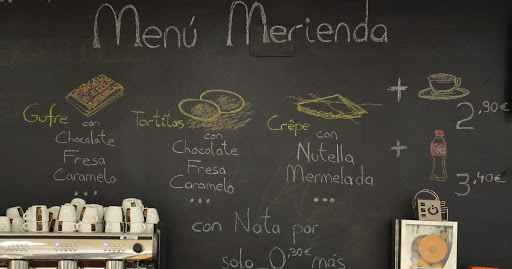 Menú Merienda
Gofre
con
Chocolate
Fresa
Caramelo
...
Tortitas
con
Chocolate
Fresa
Caramelo
...
Crêpe
con
Nutella
Mermelada
...
+
2,90€
+
3,40€
con Nata por
solo 0,30€ más